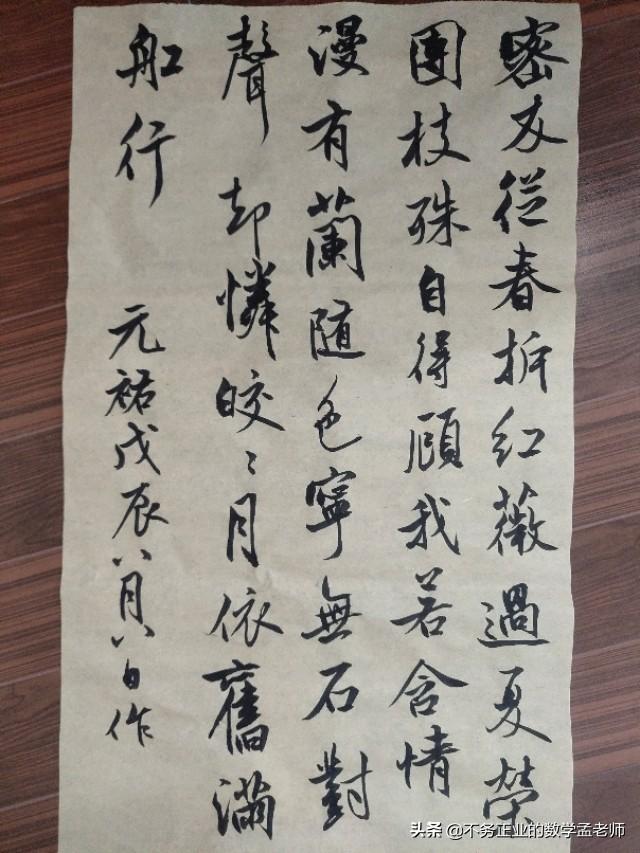 密友從春拆紅薇過夏榮
團枝殊自得顧我若含情
漫有蘭随色寧無石對
聲却憐皎〻月依舊滿
舡行
元祐戊辰八月八日作
头条 @不务正业的数学孟老师